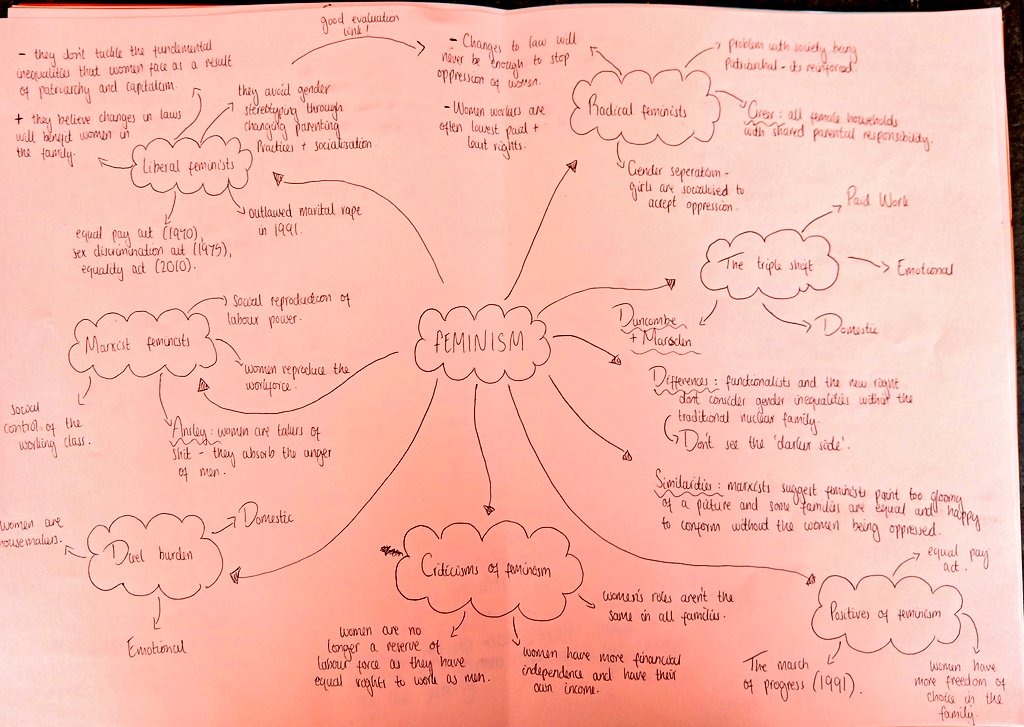 good evaluation
link!
- they don't tackle the fundemental
inequalities that women face as a result
of patriarchy and capitalism.
+ they believe changes in laws
will benefit women in
the family.
they avoid gender
stereotyping through
changing parenting
Practices + socialisation.
Liberal feminists
equal pay act (1970),
sex discrimination act (1975),
equality act (2010).
outlawed marital rape
in 1991.
- Changes to law will
never be enough to stop
oppression of women.
- Women workers are
often lowest paid +
least rights.
Radical feminists
problem with society being
Patriarchal - its reinforced.
Greer: all female households
with shared parental responsibility.
Gender seperatism -
girls are socialised to
accept oppression.
The triple shift
Paid Work
Emotional
Domestic
Duncombe
+ Marsden
FEMINISM
Marxist feminists
Social reproduction of
labour power.
women reproduce the
workforce.
social
control of the
working class.
Ansley: women are takers of
shit - they absorb the anger
of men.
Differences: functionalists and the new right
dont consider gender inequalities within the
traditional nuclear family.
Don't see the 'darker side'.
Similarities: marxists suggest feminists paint too gloomy
of a picture and some families are equal and happy
to conform without the women being oppressed.
Duel burden
Domestic
women are
housemakers.
Emotional
Criticisms of feminism
women are no
longer a reserve of
labour force as they have
equal rights to work as men.
women have more financial
independence and have their
own income.
women's roles aren't the
same in all families.
Positives of feminism
equal pay
act.
The march
of progress (1991).
women have
more freedom of
choice in the
family.